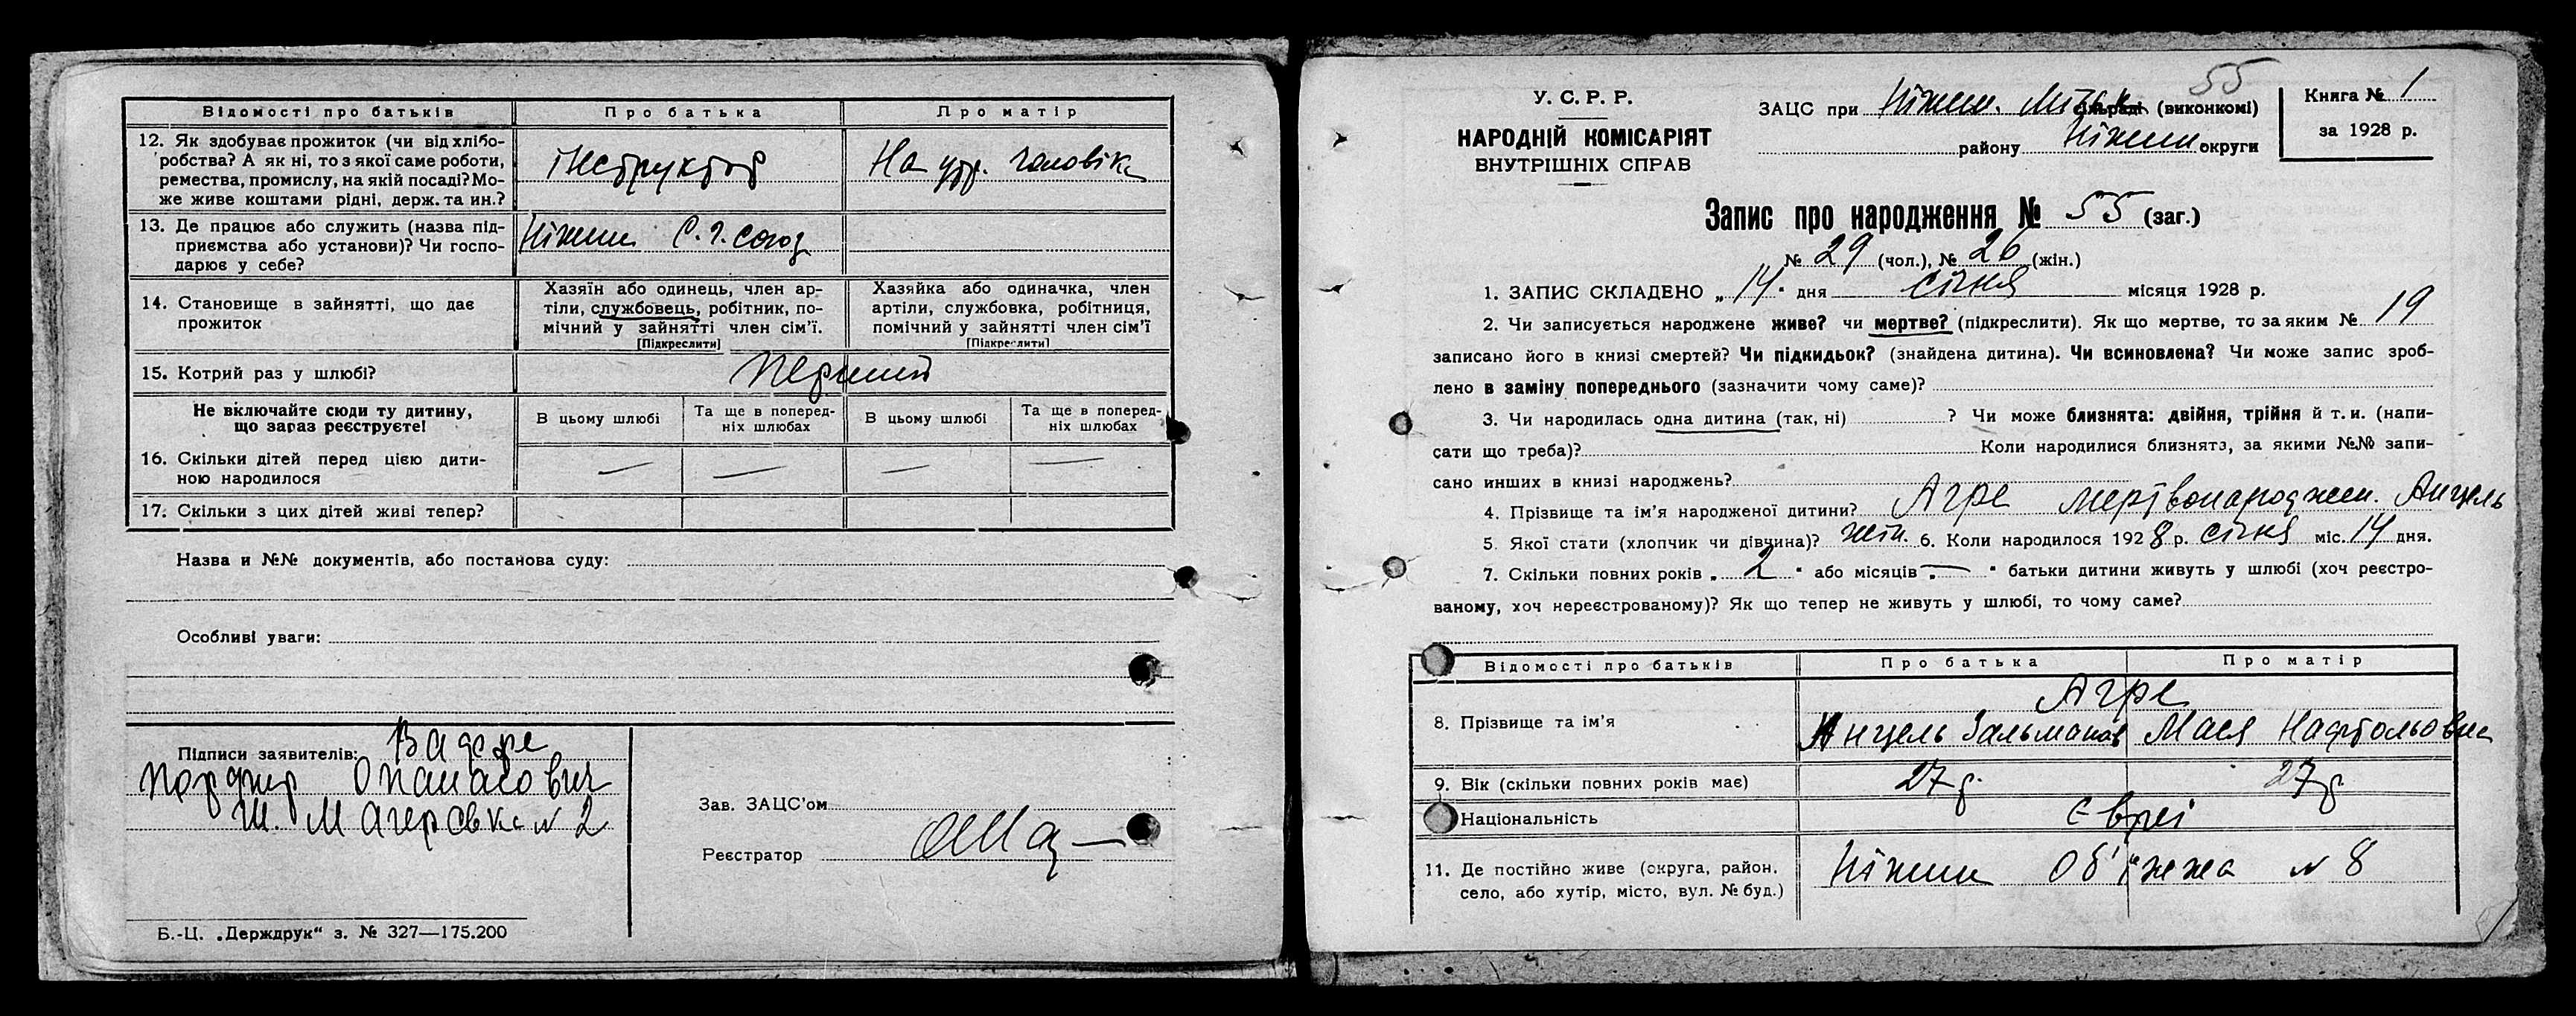 Відомості про батьків
Про батька
Про матір
12. Як здобуває прожиток (чи від хлібо-
робства? А як ні, то з якої саме роботи,
ремества, промислу, на якій посаді? Мо-
же живе коштами рідні, держ. та ин.?
інструктор
На утр. чоловіка
13. Де працює або служить (назва під-
приємства або установи)? Чи госпо-
дарює у себе?
Ніжин С.г. союз
14. Становище в зайнятті, що дає
прожиток
Хазяїн або одинець, член ар-
тіли, службовець, робітник, по-
мічний у зайнятті член сім'ї.
[Підкреслити]
Хазяйка або одиначка, член
артіли, службовка, робітниця,
помічний у зайнятті член сім'ї
[Підкреслити]
15. Котрий раз у шлюбі?
перший
Не включайте сюди ту дитину,
що зараз реєструєте!
В цьому шлюбі
Та ще в поперед-
ніх шлюбах
В цьому шлюбі
Та ще в поперед-
ніх шлюбах
16. Скільки дітей перед цією дити-
ною народилося
— — — —
17. Скільки з цих дітей живі тепер?
Назва и №№ документів, або постанова суду:
Особливі уваги:
Підписи заявителів:
Опанасович
Ш. Магерська № 2
Зав. ЗАЦС'ом
Реєстратор
Б.-Ц. „Держдрук“ з. № 327—175.200
55
У. С. Р. Р.
НАРОДНІЙ КОМІСАРІЯТ
ВНУТРІШНІХ СПРАВ
ЗАЦС при Ніжин. Міськ сільраді (виконкомі)
району Ніжин округи
Книга № 1
за 1928 р.
Запис про народження № 55 (заг.)
№ 29 (чол.), № 26 (жін.)
1. ЗАПИС СКЛАДЕНО „14. дня січня місяця 1928 р.
2. Чи записується народжене живе? чи мертве? (підкреслити). Як що мертве, то за яким № 19
записано його в книзі смертей? Чи підкидьок? (знайдена дитина). Чи всиновлена? Чи може запис зроб-
лено в заміну попереднього (зазначити чому саме)?
3. Чи народилась одна дитина (так, ні) ? Чи може близнята: двійня, трійня й т. и. (напи-
сати що треба)? Коли народилися близнята, за якими №№ запи-
сано инших в книзі народжень?
4. Прізвище та ім'я народженої дитини? Агре мертвонароджен. Анцель
5. Якої статі (хлопчик чи дівчина)? жін. 6. Коли народилося 1928 р. січня міс. 14 дня.
7. Скільки повних років „ 2 “ або місяців „ — “ батьки дитини живуть у шлюбі (хоч реєстро-
ваному, хоч нереєстрованому)? Як що тепер не живуть у шлюбі, то чому саме?
Відомості про батьків
Про батька
Про матір
8. Прізвище та ім'я
Агре
Анцель Зальманов
Мася Нафтольовна
9. Вік (скільки повних років має)
27 р.
27 р.
Національність
Євреї
11. Де постійно живе (округа, район,
село, або хутір, місто, вул. № буд.)
Ніжин Об'їжжа № 8